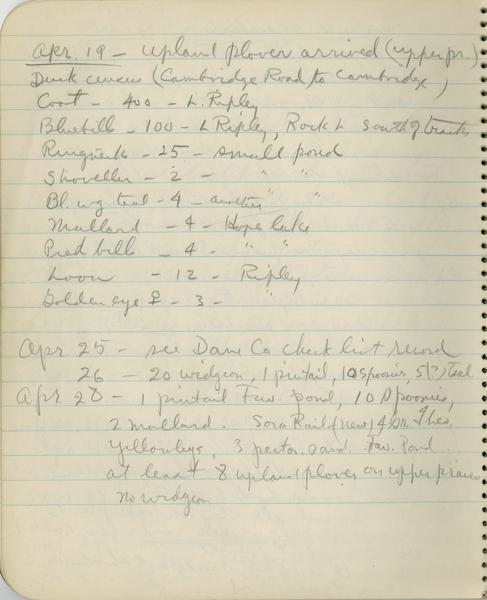 Apr. 19 - upland plover arrived (upper pr.)
Duck census (Cambridge Road to Cambridge)
Coot - 400 - L. Ripley
Bluebill - 100 - L Ripley, Rock L south of tracks
Ringneck - 25 - small pond
Shoveller - 2 - " "
Bl. wg teal - 4 - another "
Mallard - 4 - Hope lake
Pied bill - 4 - " "
Loon - 12 - Ripley
Golden eye ♀ - 3 - "
Apr 25 - see Dane Co check list record
26 - 20 widgeon, 1 pintail, 10 spoonies, 5(?) teal
Apr 28 - 1 pintail Fav. pond, 10 spoonies,
2 mallard. Sora Rail (new) 4 Gr. &
Yellowlegs, 3 pector. sand. Fav. Pond
at least 8 upland plover on upper prairie
No widgeon